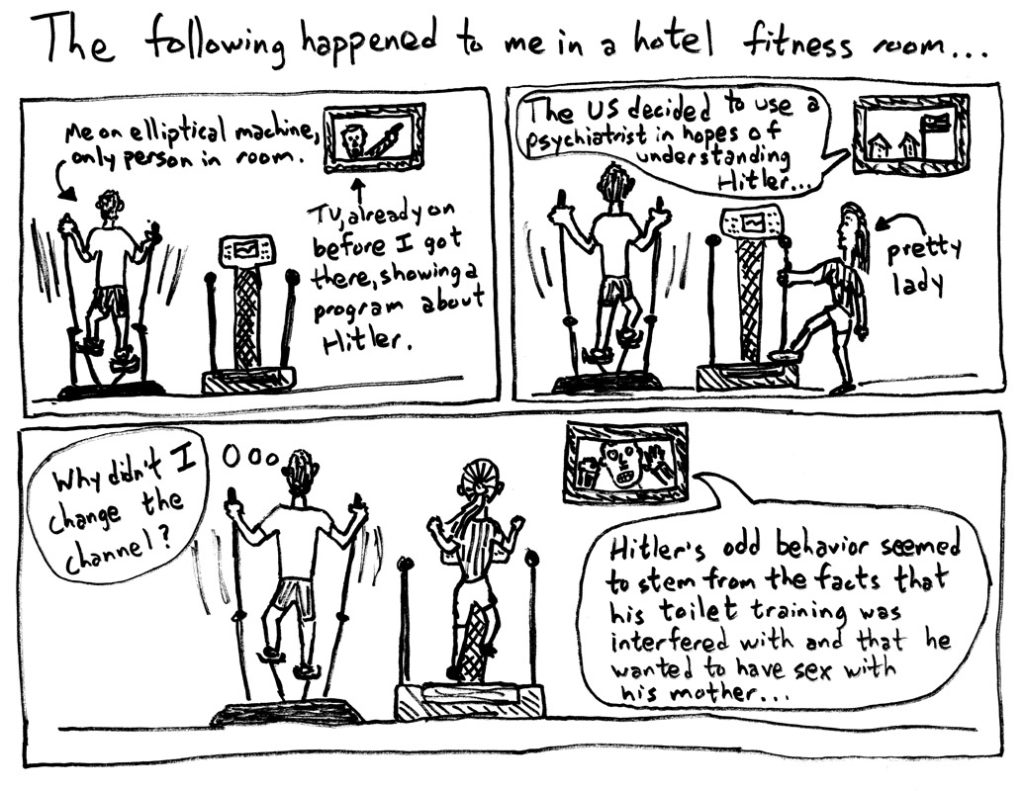 The following happened to me in a hotel fitness room...
Me on elliptical machine,
only person in room.
TV, already on
before I got
there, showing a
program about
Hitler.
The US decided to use a
psychiatrist in hopes of
understanding
Hitler...
pretty
lady
Why didn't I
change the
channel?
Hitler's odd behavior seemed
to stem from the facts that
his toilet training was
interfered with and that he
wanted to have sex with
his mother...